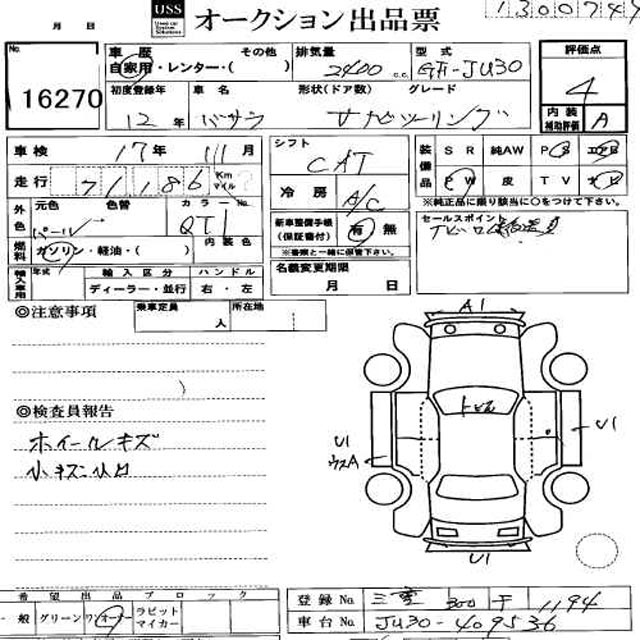 USS
Used car
System
Solutions
オークション出品票
月 日
1300744
No.
16270
車歴
自家用・レンター・( )
その他
排気量
2400 c.c.
型式
GF-JU30
評価点
4
初度登録年
12年
車名
バサラ
形状(ドア数)
グレード
サビツーリング
内装
補助評価
A
車検 17年 11月
走行 71186 Km
マイル
外色
元色
パール
色替
カラーNo.
QT1
燃料
ガソリン・軽油・( )
内装色
シフト
CAT
冷房
A/C
新車整備手帳
(保証書付)
有 無
※書類と一緒に保管下さい。
名義変更期限
月 日
装備品
SR 純AW PS エアB
PW 皮 TV ナビ
※純正品に限り該当に○をつけて下さい。
セールスポイント
輸入車用
年式
輸入区分
ディーラー・並行
ハンドル
右・左
◎注意事項
乗車定員
人
所在地
◎検査員報告
ホイールキズ
小キズ小凹
A1
トビス
U1
U1
ウスA
U1
希望出品ブロック
一般 グリーン ワンオーナー ラビットマイカー
登録No. 三重 300 チ 1194
車台No. JU30-409536